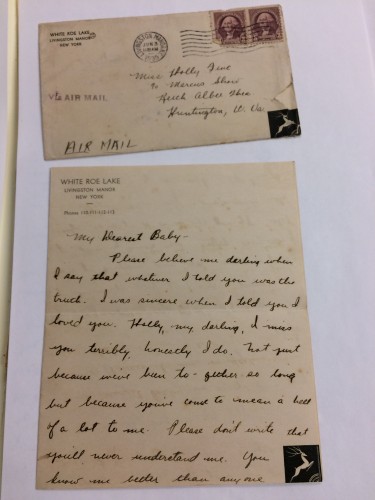 WHITE ROE LAKE
LIVINGSTON MANOR
NEW YORK
LIVINGSTON MANOR
VIA AIR MAIL
AIR MAIL
Miss Holly Fine
% Marcus Show
Keith Albee Thea
Huntington, W. Va.
WHITE ROE LAKE
LIVINGSTON MANOR
NEW YORK
My Dearest Baby-
Please believe me darling when
I say that whatever I told you was the
truth. I was sincere when I told you I
loved you. Holly, my darling, I miss
you terribly, honestly I do. Not just
because we've been to-gether so long
but because you've come to mean a hell
of a lot to me. Please don't write that
you'll never understand me. You
know me better than anyone